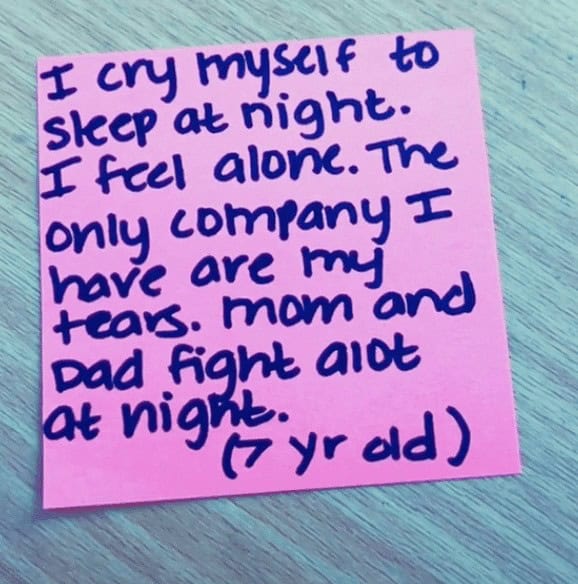 I cry myself to
sleep at night.
I feel alone. The
only company I
have are my
tears. mom and
Dad fight alot
at night.
(7 yr old)